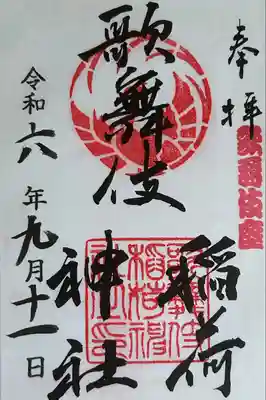 奉拝
歌舞伎座
歌舞伎
稲荷
神社
令和六年九月十一日